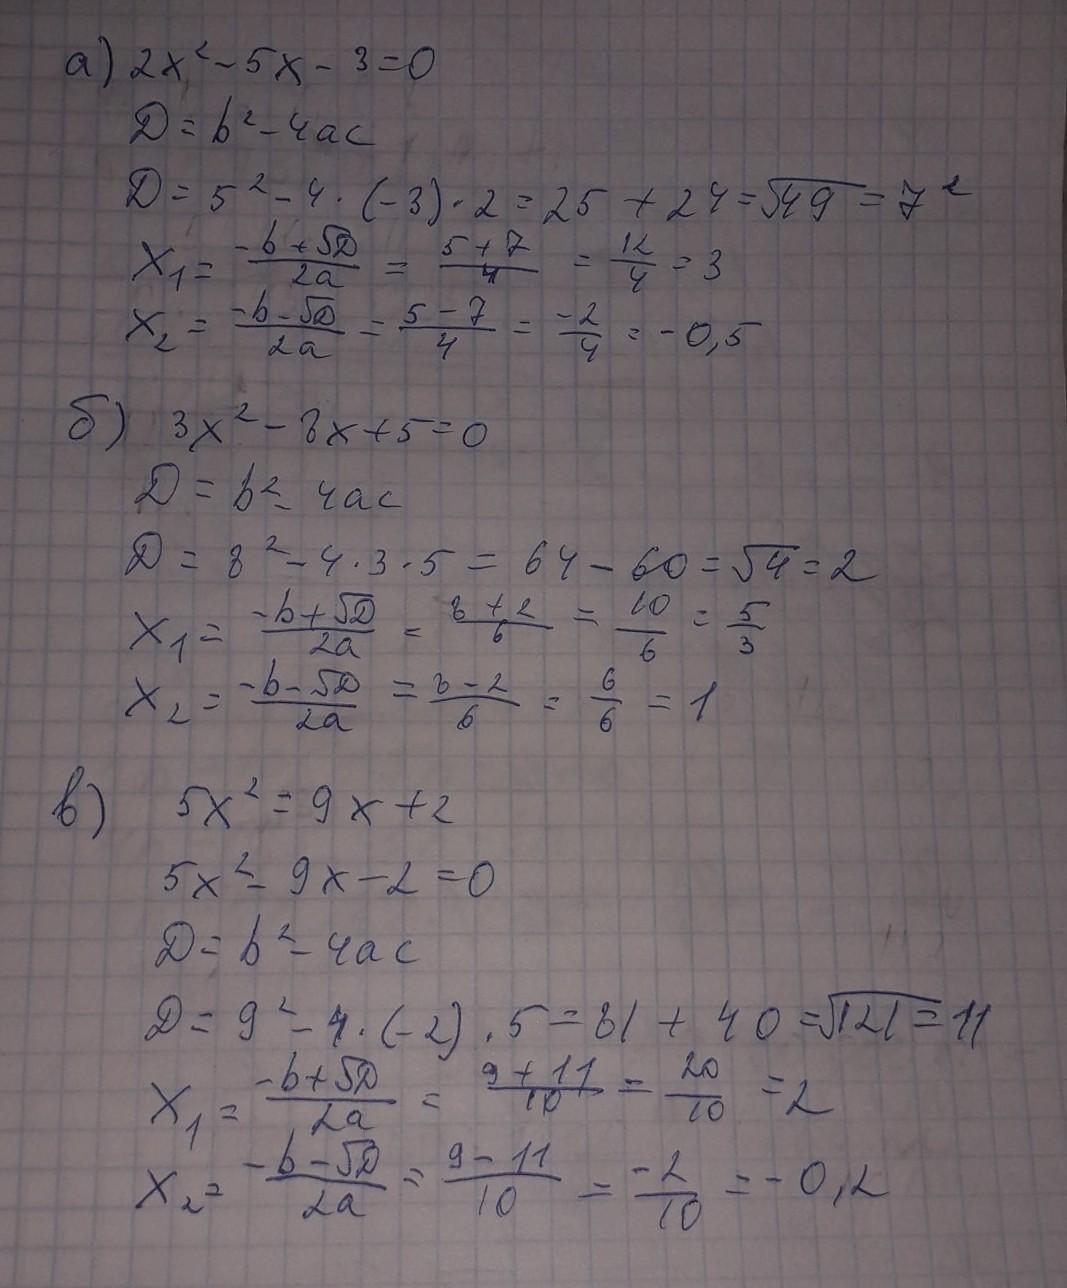 а) 2x² - 5x - 3 = 0
D = b² - 4ac
D = 5² - 4 · (-3) · 2 = 25 + 24 = √49 = 7²
X₁ = (-b + √D)/(2a) = (5 + 7)/4 = 12/4 = 3
X₂ = (-b - √D)/(2a) = (5 - 7)/4 = -2/4 = -0,5
б) 3x² - 8x + 5 = 0
D = b² - 4ac
D = 8² - 4 · 3 · 5 = 64 - 60 = √4 = 2
X₁ = (-b + √D)/(2a) = (8 + 2)/6 = 10/6 = 5/3
X₂ = (-b - √D)/(2a) = (8 - 2)/6 = 6/6 = 1
в) 5x² = 9x + 2
5x² - 9x - 2 = 0
D = b² - 4ac
D = 9² - 4 · (-2) · 5 = 81 + 40 = √121 = 11
X₁ = (-b + √D)/(2a) = (9 + 11)/10 = 20/10 = 2
X₂ = (-b - √D)/(2a) = (9 - 11)/10 = -2/10 = -0,2